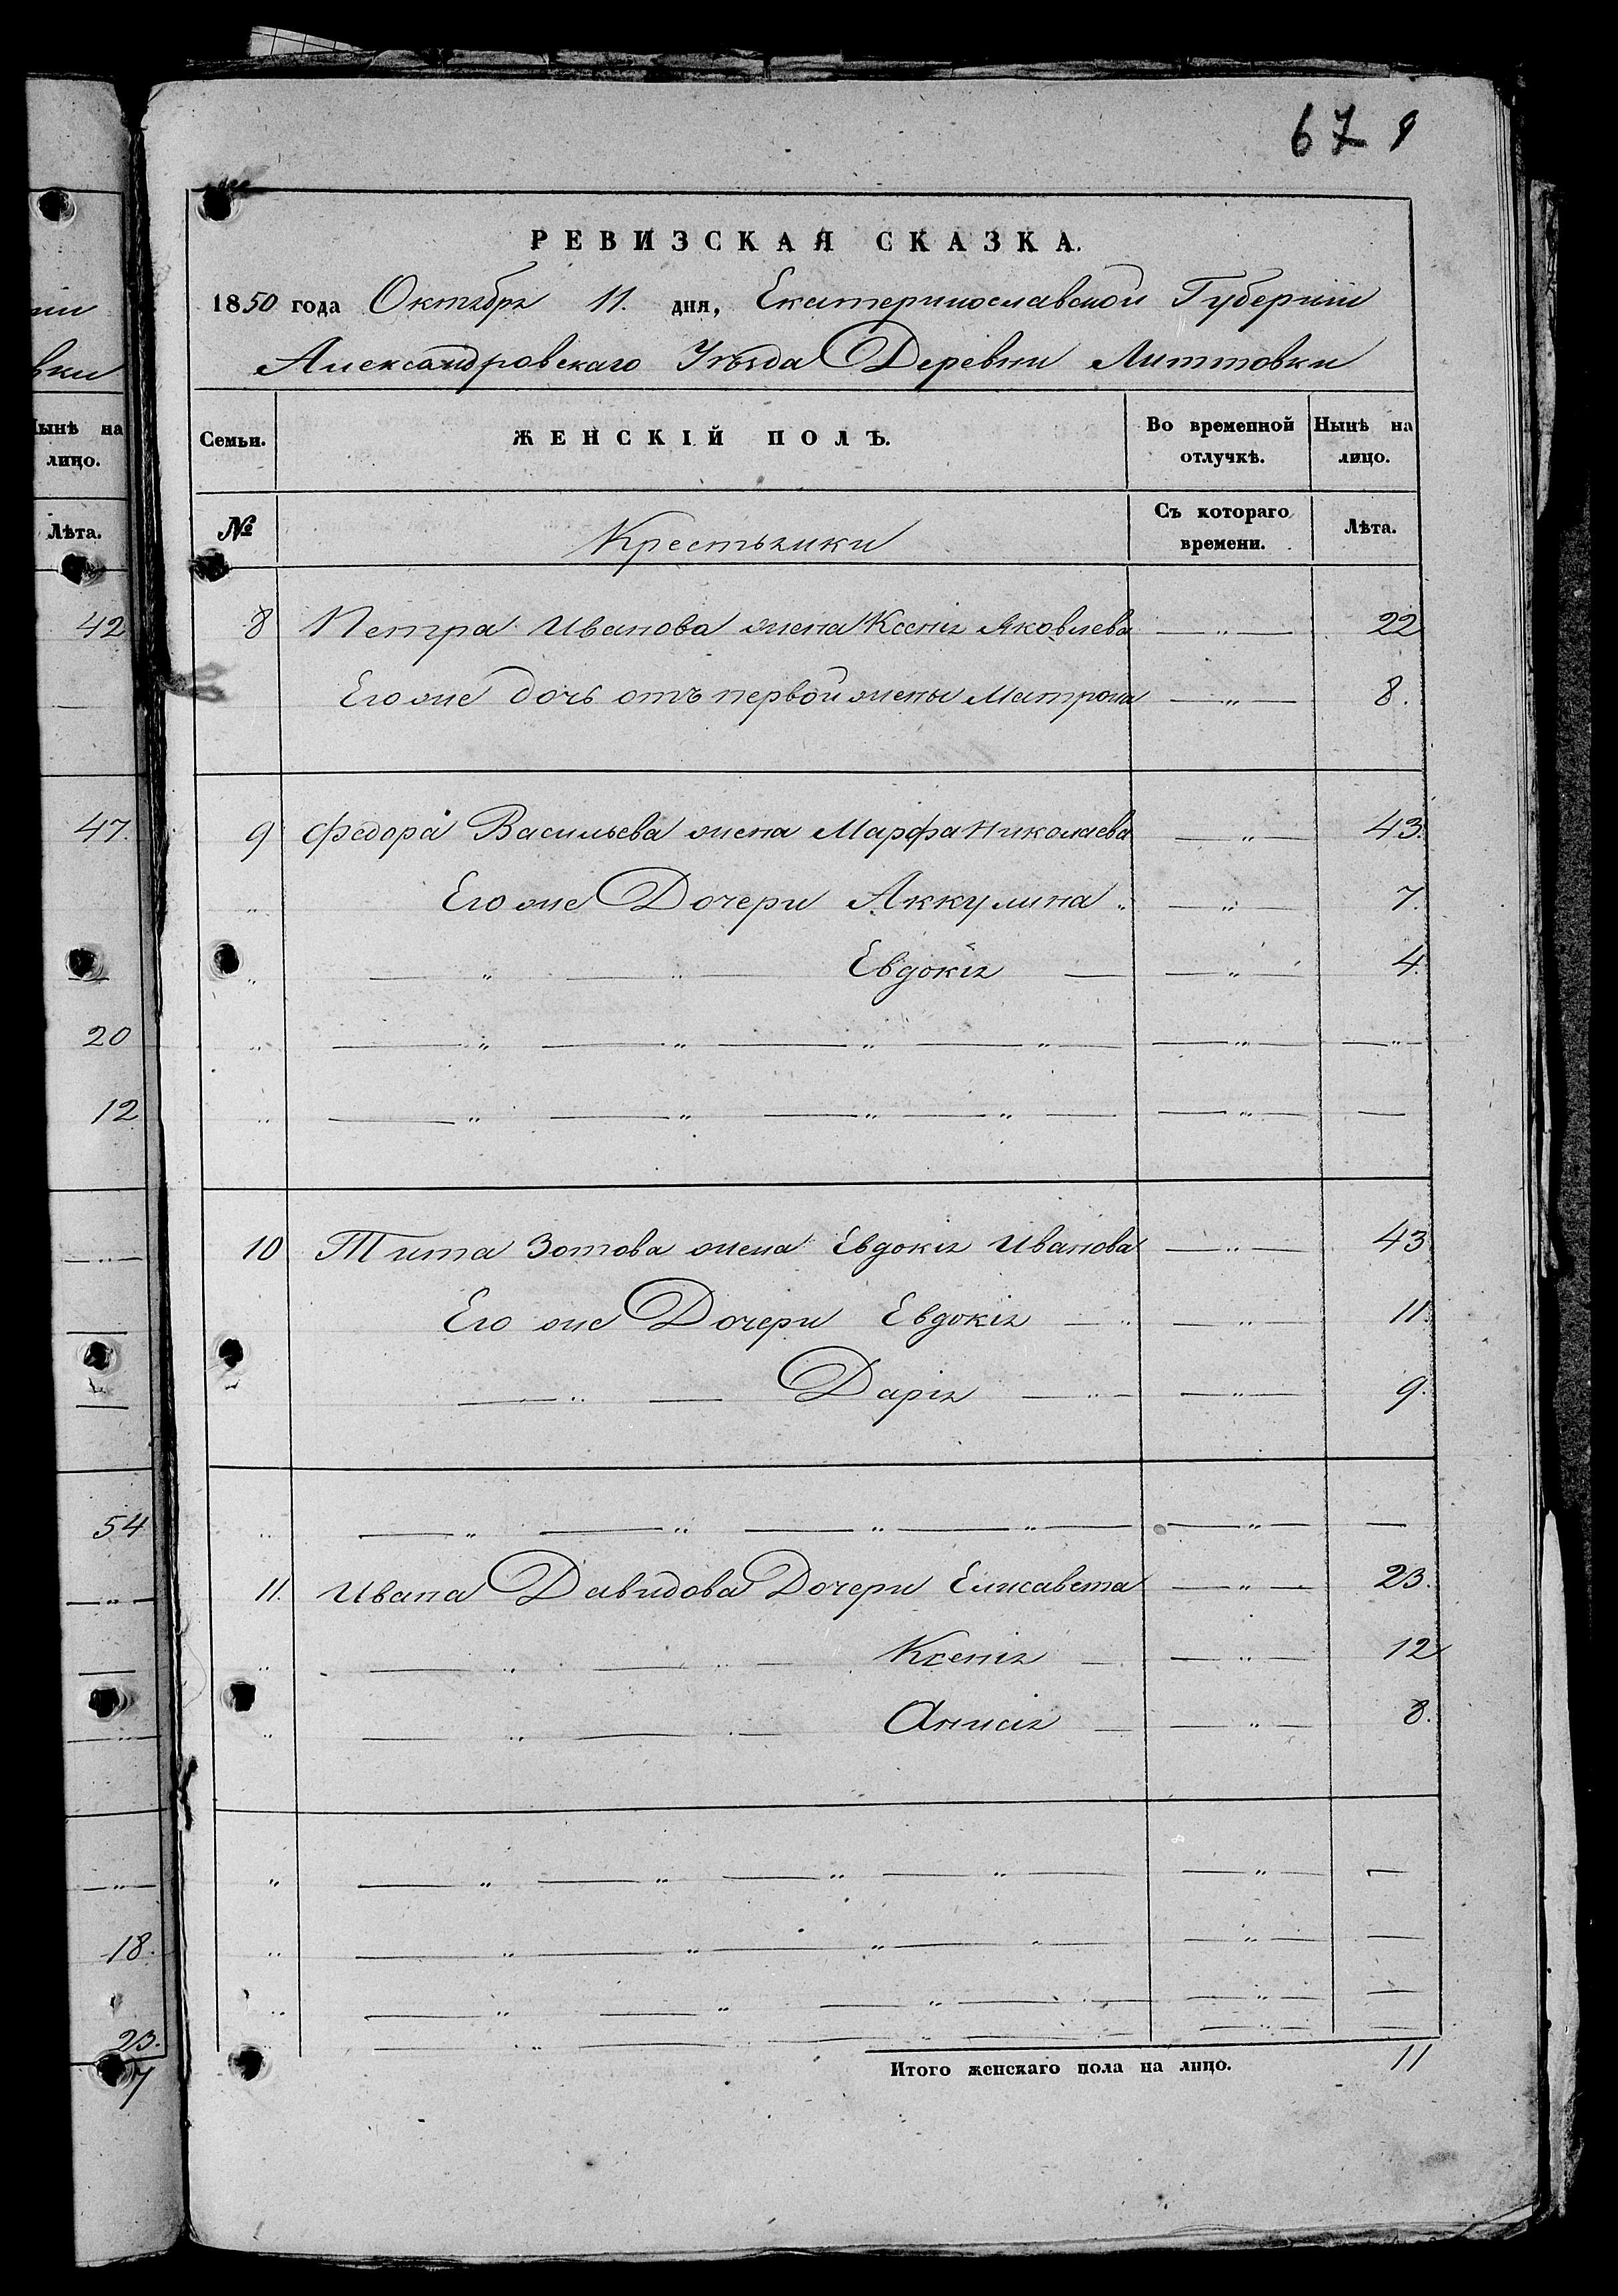 67 9
РЕВИЗСКАЯ СКАЗКА.
1850 года Октября 11. дня, Екатеринославской Губернии
Александровскаго Уѣзда Деревни Литтовки
Семьи. ЖЕНСКІЙ ПОЛЪ. Во временной отлучкѣ. Нынѣ на лицо.
№ Крестьянки Съ котораго времени. Лѣта.
8 Петра Иванова жена Ксенія Яковлева — " — 22
Его же дочь отъ первой жены Матрона — " — 8.
9 Федора Васильева жена Марфа Николаева — " — 43.
" Его же Дочери Аккулина " — " — 7.
" — " — " — Евдокія — — " — 4.
" — " — " — " — " — — " — — " —
" — " — " — " — " — — " — —
10 Тита Зотова жена Евдокія Иванова — " — 43
Его же Дочери Евдокія — " — " — 11.
— " — Дарія — " — — " — 9.
" — " — " — " — " — — " — —
11. Ивана Давидова Дочери Елисавета — " — 23.
" — " — " — Ксенія — — " — 12
" — " — " — Анисія — — " — 8.
" — " — " — " — " — — " — —
" — " — " — " — " — — " — —
" — " — " — " — — " — —
— " — " — — " — —
Итого женскаго пола на лицо. 11
нии
вки
Нынѣ на
лицо.
Лѣта.
42
47.
20
12
54
18.
23.
7